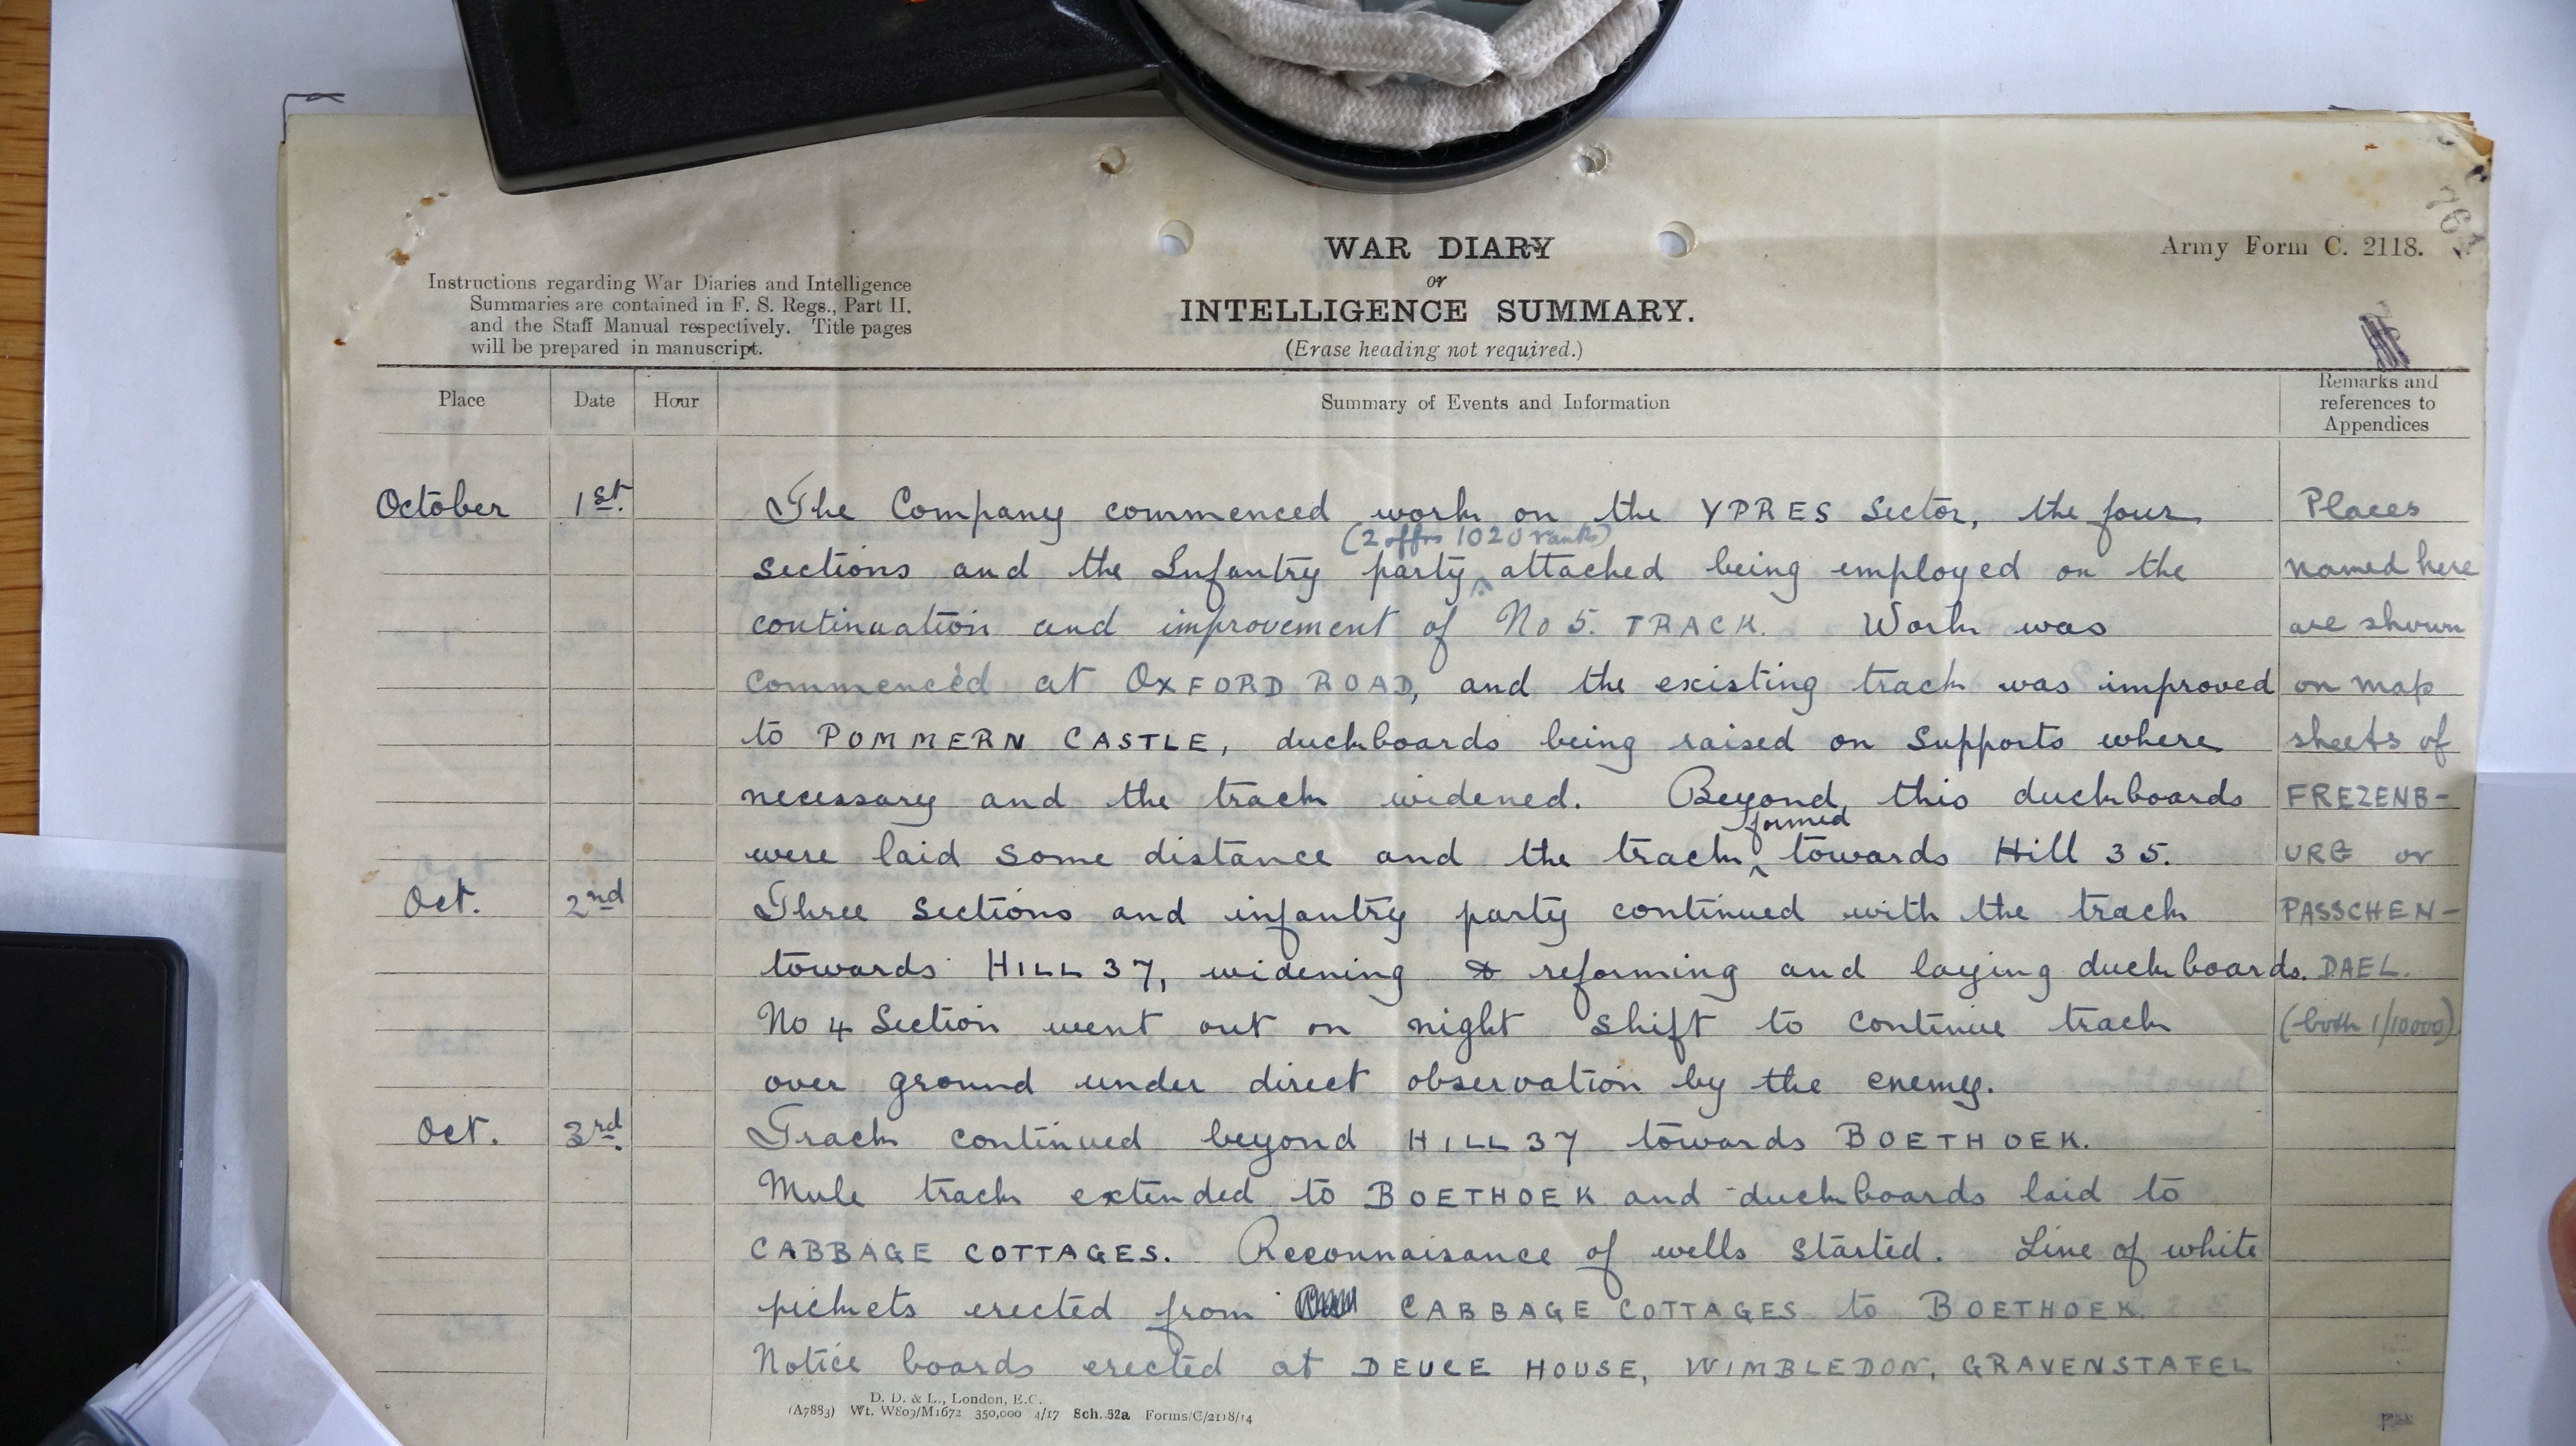 WAR DIARY
or
INTELLIGENCE SUMMARY.
(Erase heading not required.)
Army Form C. 2118.
Instructions regarding War Diaries and Intelligence
Summaries are contained in F. S. Regs., Part II.
and the Staff Manual respectively. Title pages
will be prepared in manuscript.
Place Date Hour Summary of Events and Information
Remarks and
references to
Appendices
October 1st. The Company commenced work on the YPRES Sector, the four
(2 offrs 102 O ranks)
sections and the Infantry party attached being employed on the
continuation and improvement of No 5. TRACK. Work was
commenced at OXFORD ROAD, and the existing track was improved
to POMMERN CASTLE, duckboards being raised on supports where
necessary and the track widened. Beyond this duckboards
formed
were laid some distance and the track towards Hill 35.
Oct. 2nd Three sections and infantry party continued with the track
towards HILL 37, widening & reforming and laying duckboards.
No 4 Section went out on night shift to continue track
over ground under direct observation by the enemy.
Oct. 3rd. Track continued beyond HILL 37 towards BOETHOEK.
Mule track extended to BOETHOEK and duckboards laid to
CABBAGE COTTAGES. Reconnaisance of wells started. Line of white
pickets erected from CABBAGE COTTAGES to BOETHOEK.
Notice boards erected at DEUCE HOUSE, WIMBLEDON, GRAVENSTAFEL
Places
named here
are shown
on map
sheets of
FREZENB-
URG or
PASSCHEN-
DAEL.
(both 1/10000)
D. D. & L., London, E.C.
(A7883) Wt. W809/M1672 350,000 4/17 Sch. 52a Forms/C/2118/14